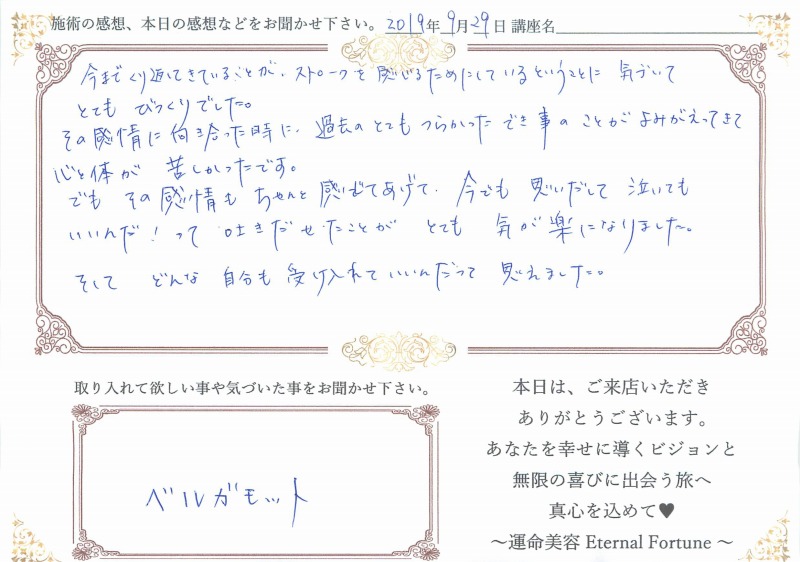 施術の感想、本日の感想などをお聞かせ下さい。 2019年 9月 29日 講座名
今までくり返してきていることが、ストロークを感じるためにしているということに気づいて
とても びっくりでした。
その感情に向き合った時に、過去のとてもつらかった でき事のことが よみがえってきて
心と体が 苦しかったです。
でも その感情も ちゃんと感じてあげて、今でも 思いだして 泣いても
いいんだ！って 吐きだせたことが とても 気が楽になりました。
そして どんな 自分も 受け入れていいんだって 思えました。
取り入れて欲しい事や気づいた事をお聞かせ下さい。
ベルガモット
本日は、ご来店いただき
ありがとうございます。
あなたを幸せに導くビジョンと
無限の喜びに出会う旅へ
真心を込めて♥
～運命美容 Eternal Fortune ～